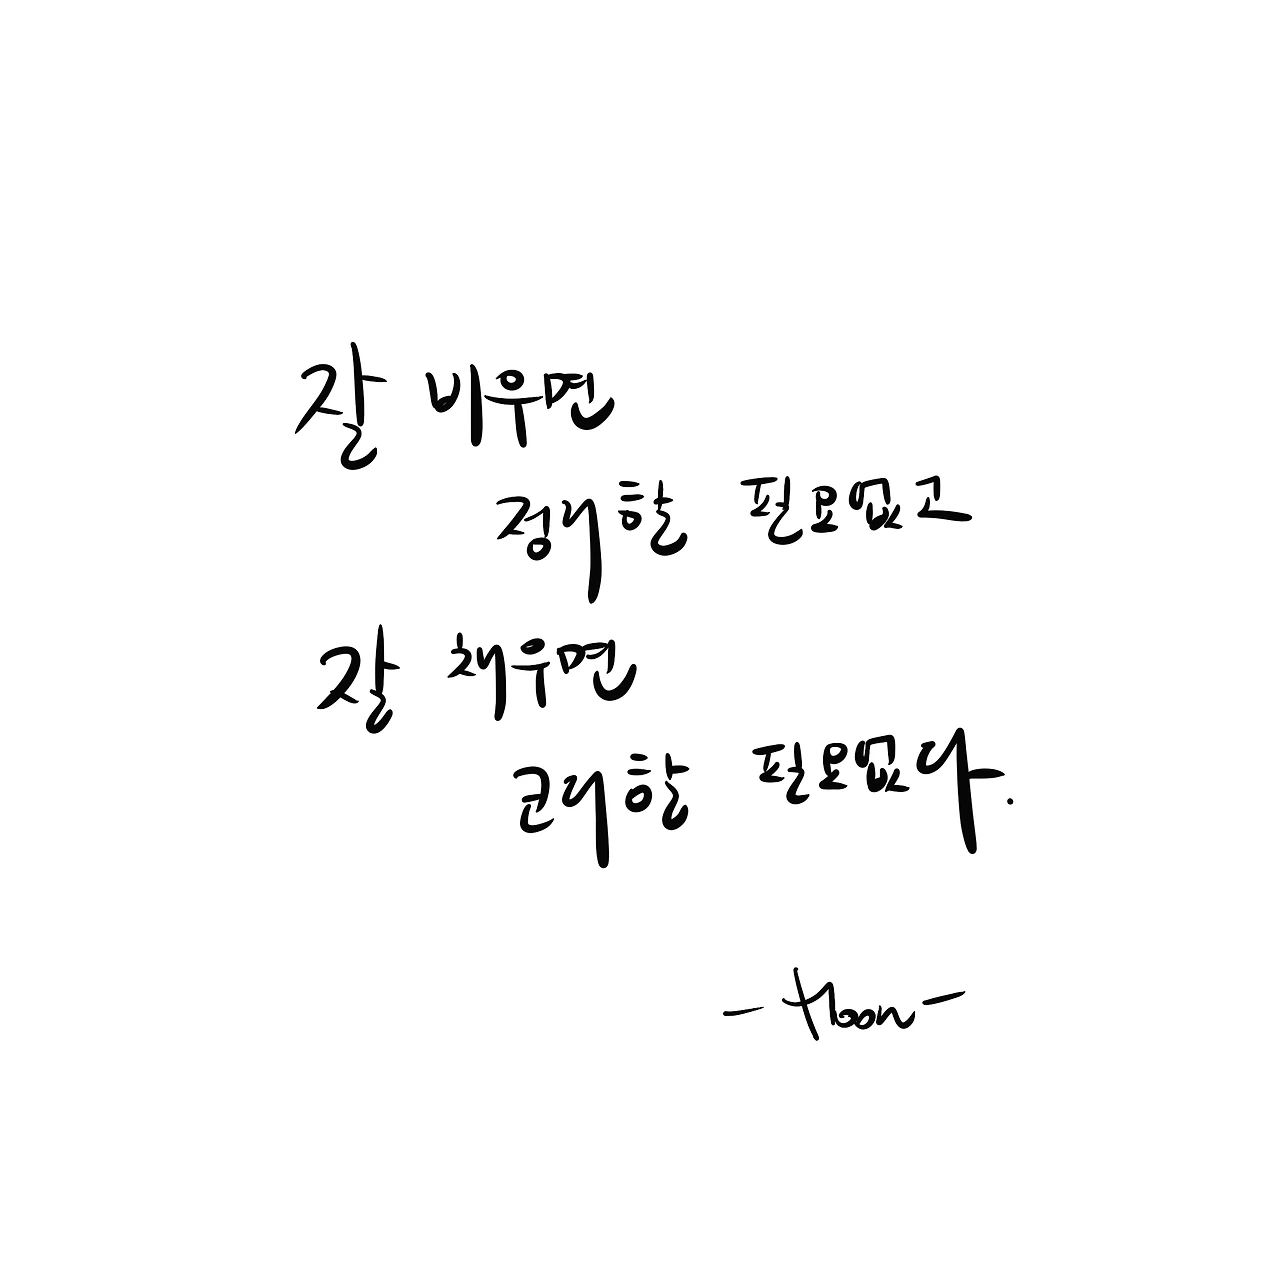 잘 비우면
정리할 필요없고
잘 채우면
관리할 필요없다.
- Hoon -